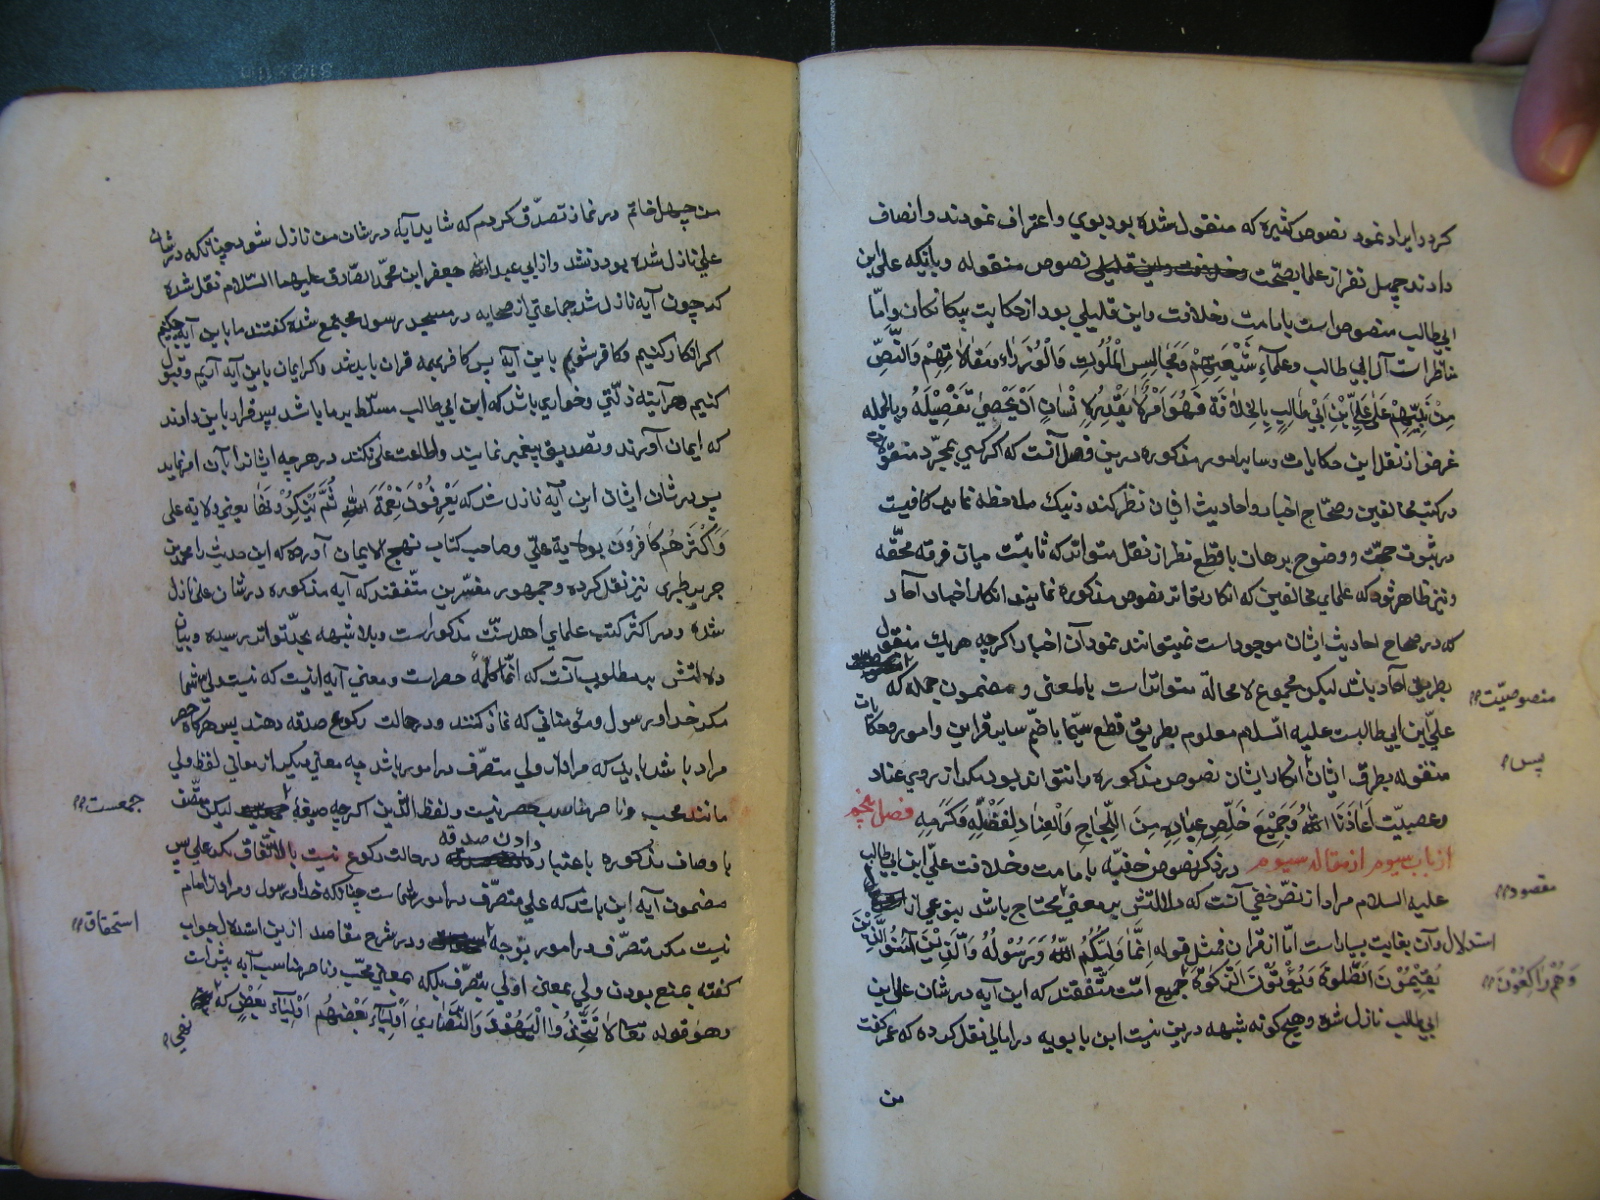 کرد و ایراد نمود نصوص کثیره که منقول شده بود بوی و اعتراف نمودند و انصاف
دادند چهل نفر از علما بصحّت نصوص منقوله و بآنکه علی ابن
ابی طالب منصوص است بامامت و خلافت و این قلیلی بود از حکایت بیکانکان و امّا
مناظرات آل ابی طالب و علمآءِ شیعتهم و مجالس الملوک و الوزراء و مقالاتهم و النّصّ
مِنْ نَبِیِّهِمْ عَلی عَلِیِّ بْنِ اَبی طالِبٍ بِالْخِلافَةِ فَهُوَ اَمْرٌ لا یَقْدِرُ لِاِنْسانٍ اَنْ یُحْصِیَ تَفْصِیلَهُ و بالجمله
غرض از نقل این حکایات و سایر امور مذکوره درین فصل آنست که اکر کسی بمجرّد منقولات
در کتب مخالفین و صحّاح اخبار و احادیث ایشان نظر کند و نیک ملاحظه نماید کافیست
در ثبوت حجّت و وضوح برهان با قطع نظر از نقل متواتر که ثابتست میان فرقه محقّه
و نیز ظاهر شود که علمای مخالفین که انکار تواتر نصوص مذکوره نمایند انکار اخبار آحاد
که در صحاح احادیث ایشان موجود است نمیتوانند نمود آن اخبار اکرچه هر یک منقول
بطریق آحاد باشد لیکن مجموع لا محالة متواتر است بالمعنی و مضمون جمله که
منصوصیّت
علیّ ابن ابی طالبست علیه السلام معلوم بطریق قطع سیّما با ضمّ سایر قراین و امور و حکایات
پس
منقوله بطرق ایشان انکار ایشان نصوص مذکوره را نتواند بود مکر از روی عناد
و عصبیّت اَعاذَنَا اللّهُ وَ جَمِیعَ خُلَّصِ عِبادِهِ مِنَ اللِّجاجِ وَ الْعِنادِ لِفَضْلِهِ وَ کَرَمِهِ فصل پنجم
از باب سیوم از مقاله سیوم در ذکر نصوص خفیّه بامامت و خلافت علیّ ابن ابی طالب
علیه السلام مراد از نصّ خفی آنست که دلالتش بر معنی محتاج باشد بنوعی از
مقصود
استدلال و آن بغایت بسیار است امّا از قران فمثل قوله اِنَّما وَلِیُّکُمُ اللّهُ وَ رَسُولُهُ وَ الَّذِینَ آمَنُوا الَّذِینَ
یُقِیمُونَ الصَّلوةَ وَ یُؤْتُونَ الزَّکوةَ جمیع امّت متّفقند که این آیه در شان علی ابن
وَ هُمْ راکِعُونَ
ابی طالب نازل شده و هیچ کونه شبهه درین نیست ابن بابویه در امالی نقل کرده که عمر کفت
من
من چهل خاتم در نماز تصدّق کردم که شاید آیه در شان من نازل شود چنانکه در شان
علی نازل شده بود و نشد و از ابی عبد الله جعفر ابن محمّد الصّادق علیهما السّلام نقل شده
که چون آیه نازل شد جماعتی از صحابه در مسجد رسول مجتمع شده کفتند ما باین آیه چکنیم
اکر انکار کنیم و کافر شویم باین آیه پس کافر بهمه قران باید شد و اکر ایمان باین آیه آریم و قبول
کنیم هر آینه ذلّتی و خواری باشد که ابن ابی طالب مسلّط بر ما باشد پس قرار باین دادند
که ایمان آورند و تصدیق پیغمبر نمایند و اطاعت علی نکنند در هرچه ایشانرا بآن امر نماید
پس در شان ایشان این آیه نازل شد که یَعْرِفُونَ نِعْمَةَ اللّهِ ثُمَّ یُنْکِرُونَها یعنی ولایة علی
وَ اَکْثَرُهُمْ کافِرُونَ بولایة علیّ و صاحب کتاب نهج الایمان آورده که این حدیث را محمد بن
جریر طبری نیز نقل کرده و جمهور مفسّرین متّفقند که آیه مذکوره در شان علی نازل
شده و در اکثر کتب علمای اهل سنّت مذکور است و بلا شبهه بحدّ تواتر رسیده و بیان
دلالتش بر مطلوب آنست که انّما کلمهٔ حصر است و معنی آیه اینست که نیست ولی شما
مکر خدا و رسول و مؤمنانی که نماز کنند و در حالت رکوع صدقه دهند پس هرکاه حصر
مراد باشد باید که مراد از ولی متصرّف در امور باشد چه معانی دیکر از معانی لفظ ولی
مانند محب و ناصر مناسب حصر نیست و لفظ الّذین اکرچه صیغهٔ لیکن متّصف
جمعست
باوصاف مذکوره باعتبار دادن صدقه در حالت رکوع نیست بالاتّفاق مکر علی پس
مضمون آیه این باشد که علی متصرّف در امور شماست چنانکه خدا و رسول و مراد از امام
نیست مکر متصرّف در امور بوجه و در شرح مقاصد ازین استدلال جواب
استحقاق
کفته بمنع بودن ولی بمعنی اولی بتصرّف بلکه بمعنی محبّ و ناصر مناسب آیه پیش است
و هو قوله تعالی لا تَتَّخِذُوا الْیَهُودَ وَ النَّصاری اَوْلِیآءَ بَعْضُهُمْ اَوْلِیآءُ بَعْضٍ که
نفی